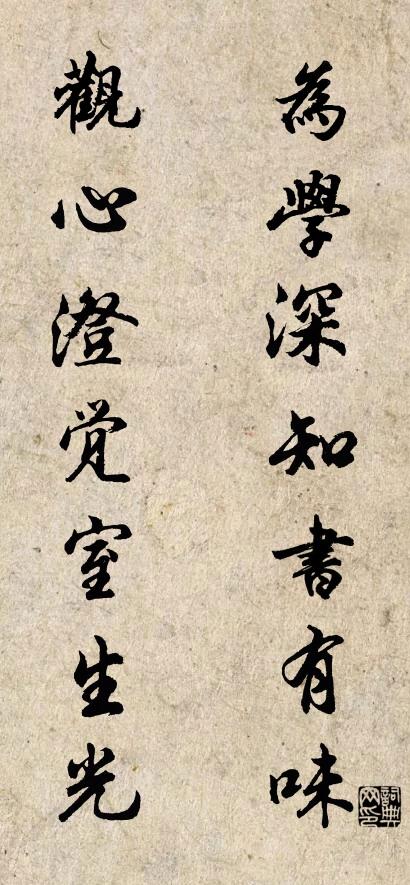 為學深知書有味
觀心澄觉室生光
詞典网印